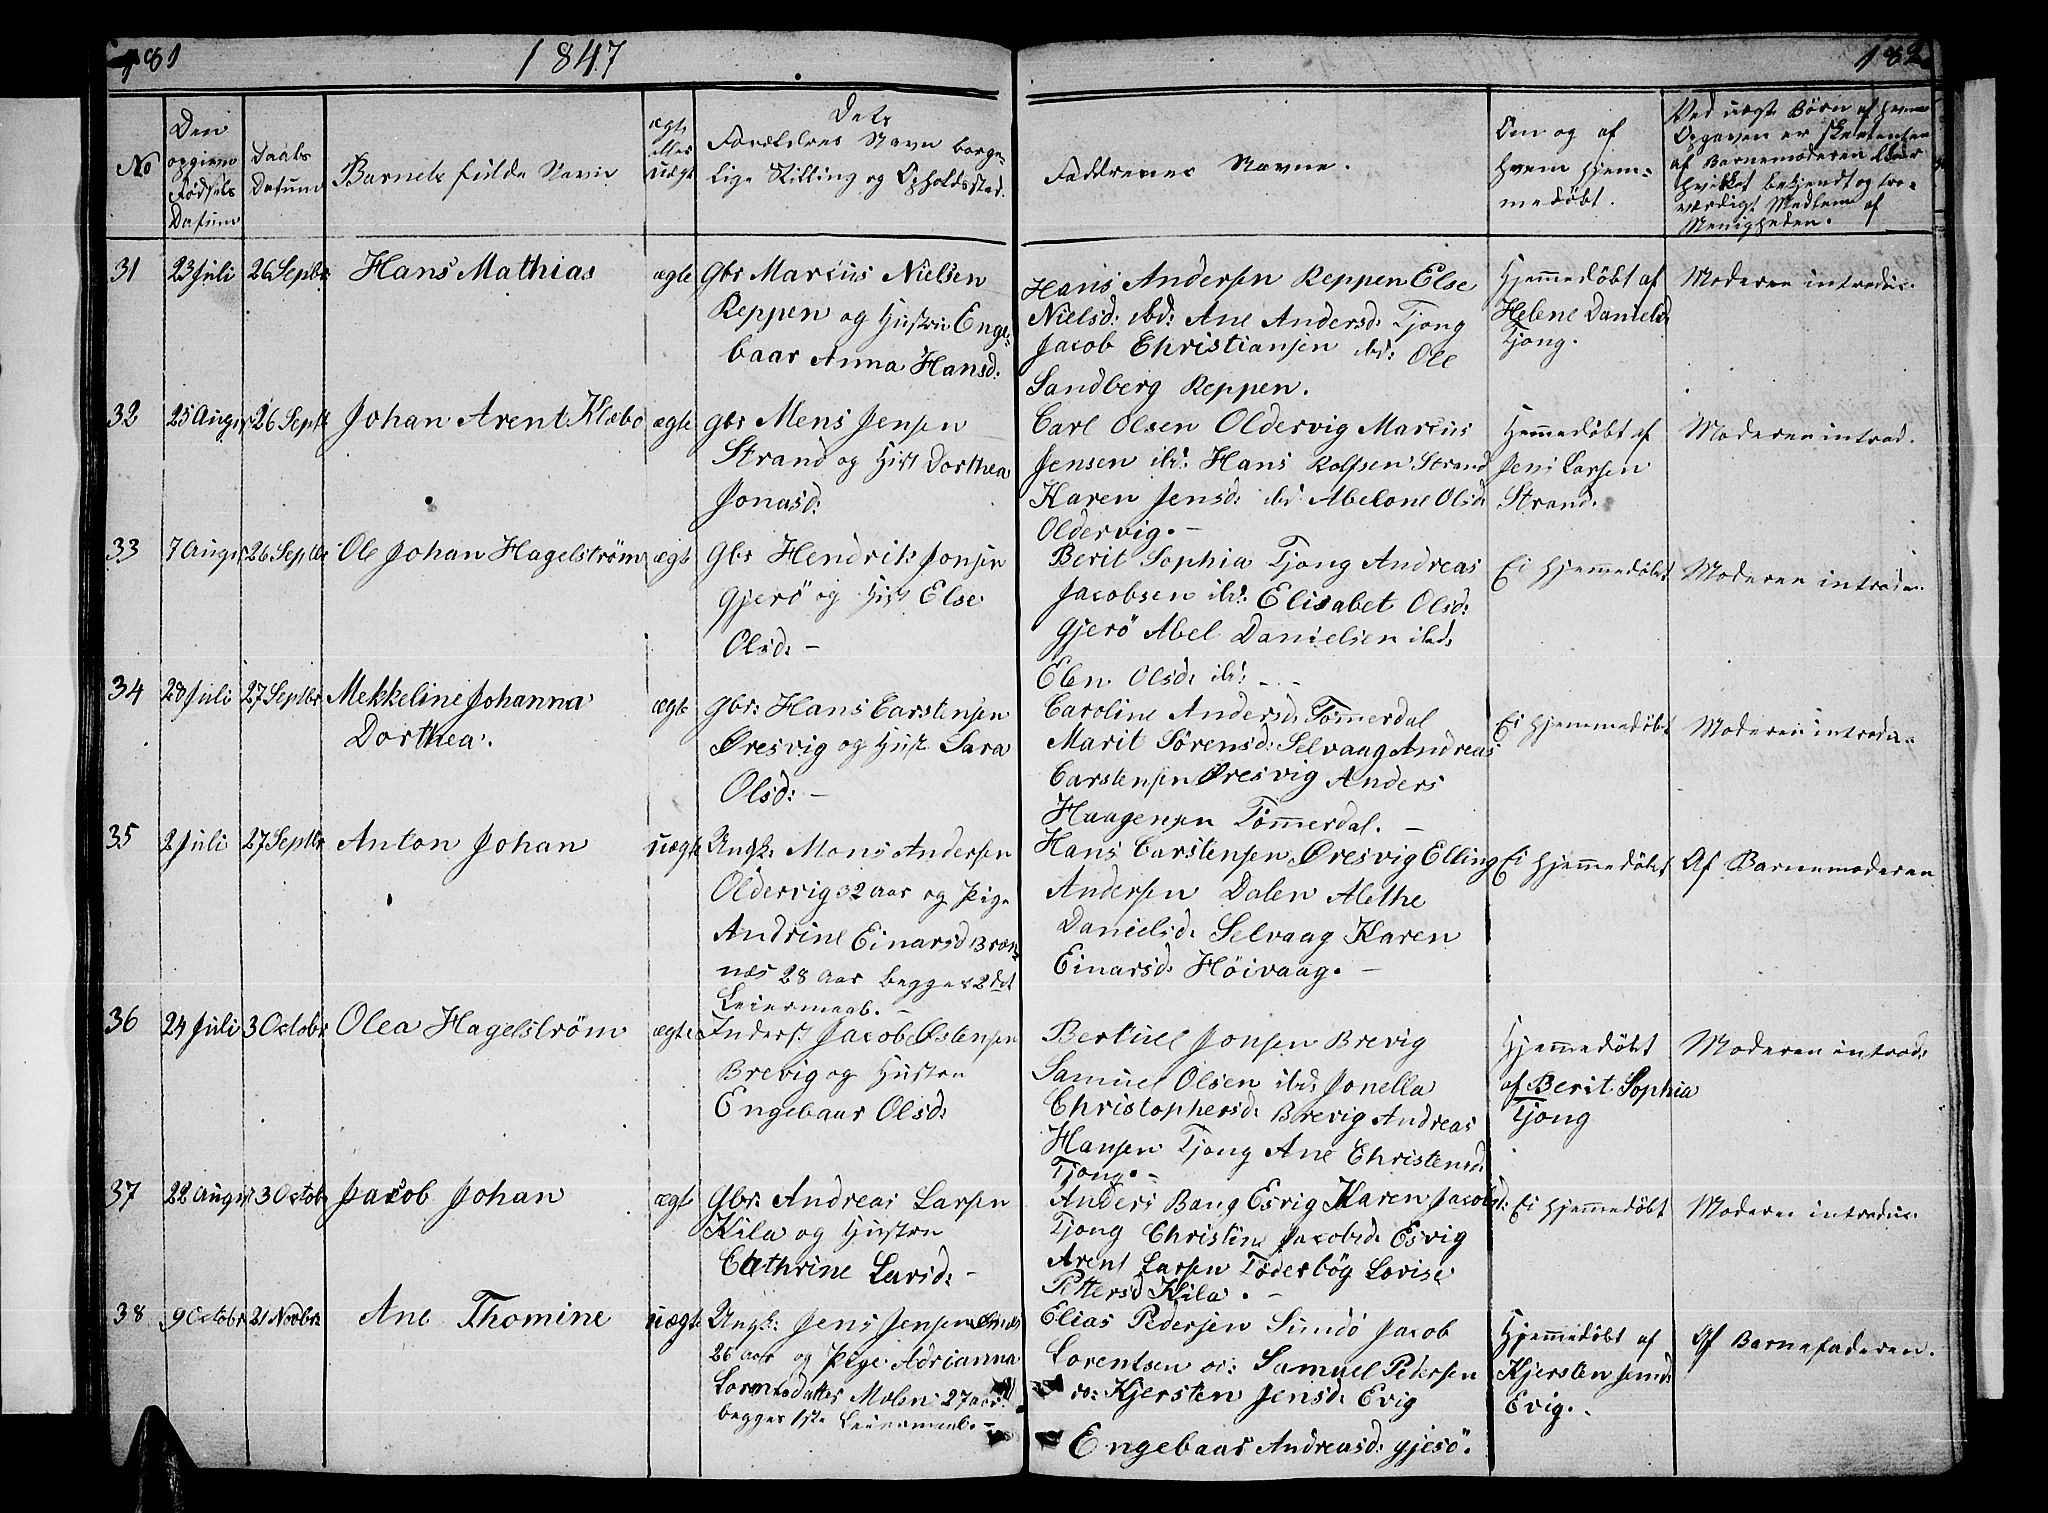 181
1847
182
No
Den opgivne Fødsels Datum
Daabs Datum
Barnets fulde Navn
ægte eller uægte
Dets Forældres Navn borgelige Stilling og Opholdssted.
Faddrenes Navne.
Om og af hvem hjemmedøbt.
Ved uægte Børn af hvem Opgaven er skeet enten af Barnemoderen eller hvilket bekjendt og troværdigt Medlem af Menigheden.
31
23 Juli
26 Septbr
Hans Mathias
ægte
Gbr Marcus Nielsen
Reppen og Hustru Enge-
baar Anna Hansd:
Hans Andersen Reppen Else
Nielsd: ibd: Ane Andersd: Tjong
Jacob Christiansen ibd: Ole
Sandberg Reppen.
Hjemmedøbt af
Helene Danielsd:
Tjong.
Moderen introduc.
32
25 Augus
26 Septb
Johan Arent Klæbo
ægte
gbr Mens Jensen
Strand og Hust Dorthea
Jonasd:
Carl Olsen Oldervig Marcus
Jensen ibd: Hans Rolfsen Strand
Karen Jensd: ibd Abelone Olsd
Oldervig. –
Hemmedøbt af
Jens Larsen
Strand:
Moderen introd.
33
7 Augus
26 Septbr
Ole Johan Hagelström
ægte
Gbr Hendrik Jonsen
Gjerö og Hust Else
Olsd: –
Berit Sophia Tjong Andreas
Jacobsen ibd: Elisabet Olsd:
Gjerö Abel Danielsen ibd:
Elen Olsd: ibd: –
Ei hjemmedöbt
Moderen introdu.
34
28 Juli
27 Septbr
Mekkeline Johanna
Dorthea.
ægte
Gbr: Hans Carstensen
Øresvig og Hust Sara
Olsd: –
Caroline Andersd: Tömmerdal
Marit Sörensd: Selvaag Andreas
Carstensen Øresvig Anders
Haagensen Tömmerdal. –
Ei hjemmedøbt
Moderen introdu.
35
2 Juli
27 Septbr
Anton Johan
uægte
Ungk: Mons Andersen
Oldervig 32 aar og Pige
Andrine Einarsd Bræn-
næs 28 aar begges 2det
Leiermaal. –
Hans Carstensen Øresvig Elling
Andersen Dalen Alethe
Danielsd: Selvaag Karen
Einarsd: Höivaag. –
Ei hjemmedöbt
Af Barnemoderen
36
24 Juli
3 Octobr
Olea Hagelström
ægte
Inderst Jacob Østensen
Brevig og Hustru
Engebaar Olsd:
Bertuel Jonsen Brevig
Samuel Olsen ibd: Jonella
Christophersd: Brevig Andreas
Hansen Tjong Ane Christensd:
Tjong. –
Hjemmedöbt
af Berit Sophia
Tjong
Moderen introd:
37
22 Augus
3 Octob
Jacob Johan
ægte
Gbr: Andreas Larsen
Kila og Hustru
Cathrine Larsd: –
Anders Bang Esvig Karen Jacobsd:
Tjong Christine Jacobsd: Esvig
Arent Larsen Töderbög Lovise
Pettersd Kila. –
Ei hjemmedöbt
Moderen introduc.
38
9 Octobr
21 Novbr
Ane Thomine
uægte
Ungk: Jens Jensen
26 aar og Pige Adrianna
Lorentsdatter Molen: 27 aar
begges 1ste Leiermaal. –
Elias Pedersen Sundö Jacob
Lorentsen Samuel Pedersen
Kjersten Jensd: Evig
Engebaar Andreasd: Gjesö.
Hjemmedöbt af
Kjersten Jensd:
Evig.
Af Barnefaderen.